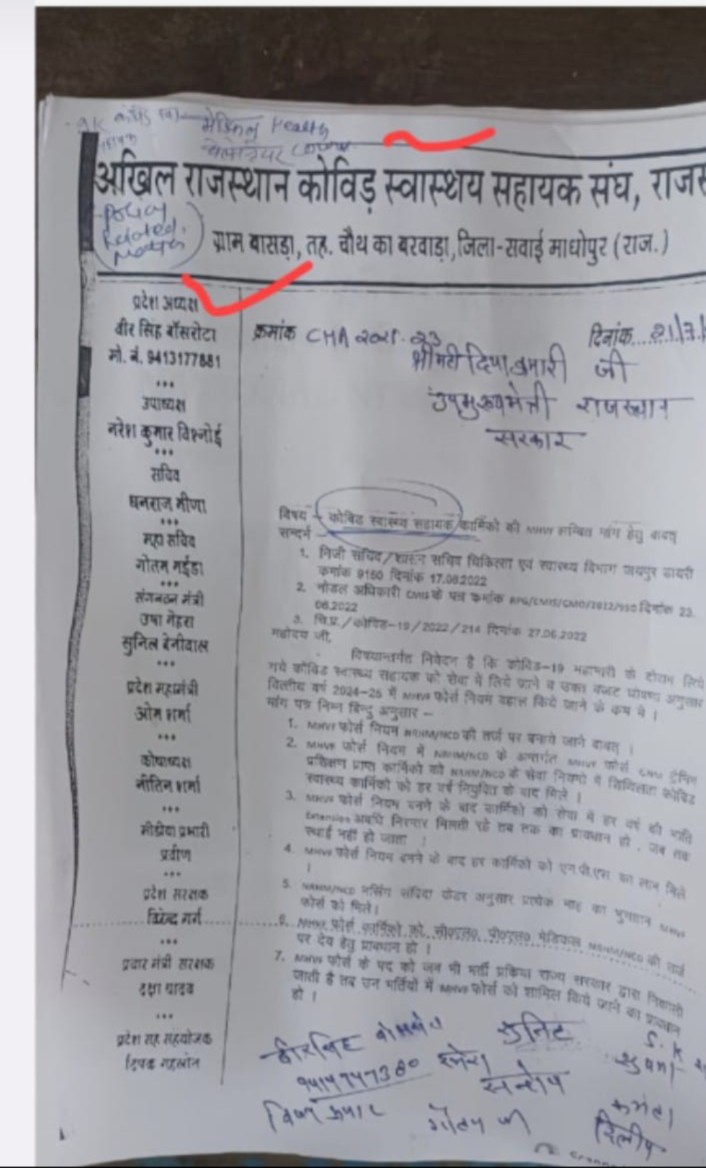 Health
अखिल राजस्थान कोविड़ स्वास्थय सहायक संघ, राजस
Policy
Related
ग्राम बासड़ा, तह. चौथ का बरवाड़ा, जिला-सवाई माधोपुर (राज.)
प्रदेश अध्यक्ष
वीर सिंह बॉसरोटा
मो. नं. 9413177881
उपाध्यक्ष
नरेश कुमार विश्नोई
सचिव
धनराज मीणा
महा सचिव
गोतम मईडा
संगठन मंत्री
उषा मेहरा
सुनिल बेनीवाल
प्रदेश महामंत्री
ओम शर्मा
कोषाध्यक्ष
नीतिन शर्मा
मीडीया प्रभारी
प्रवीण
प्रदेश सरक्षक
विरेन्द्र गर्ग
प्रचार मंत्री सरक्षक
दक्षा यादव
प्रदेश सह सहयोजक
दिपक गहलोत
क्रमांक CHA
दिनांक...21/7/
श्रीमती दिया कुमारी जी
उपमुख्यमंत्री राजस्थान
सरकार
विषय - कोविड स्वास्थ्य सहायक कार्मिको की MHVF लम्बित मांग हेतु बाबत्
सन्दर्भ -
1. निजी सचिव/शासन सचिव चिकित्सा एवं स्वास्थ्य विभाग जयपुर डायरी
क्रमांक 9150 दिनांक 17.06.2022
2. नोडल अधिकारी CMIS के पत्र क्रमांक दिनांक 23.
06.2022
3. चि.प्र./कोविड-19/2022/214 दिनांक 27.06.2022
महोदय जी,
विषयान्तर्गत निवेदन है कि कोविड-19 महामारी के दौरान लिये
गये कोविड स्वास्थ्य सहायक को सेवा में लिये जाने व उक्त बजट घोषणा अनुसार
वित्तीय वर्ष 2024-25 में MHVF फोर्स नियम बहाल किये जाने के क्रम में।
मांग पत्र निम्न बिन्दु अनुसार -
1. MHVF फोर्स नियम NRHM/NCD की तर्ज पर बनाये जाने बाबत्।
2. MHVF फोर्स नियम में NRHM/NCD के अन्तर्गत MHVF फोर्स, ट्रेनिंग
प्रशिक्षण प्राप्त कार्मिको को NRHM/NCD के सेवा नियमो में शिथिलता कोविड
स्वास्थ्य कार्मिको को हर वर्ष नियुक्ति के बाद मिले।
3. MHVF फोर्स नियम बनने के बाद कार्मिको को सेवा में हर वर्ष की भांति
Extension अवधि निरन्तर मिलती रहे तब तक का प्रावधान हो, जब तक
स्थाई नहीं हो जाता।
4. MHVF फोर्स नियम बनने के बाद हर कार्मिको को एन.पी.एस. का लाभ मिले
।
5. NRHM/NCD नर्सिंग संविदा केडर अनुसार प्रत्येक माह का भुगतान MHVF
फोर्स को मिले।
6. MHVF फोर्स कार्मिको को सी०एल०, पी०एल० मेडिकल NRHM/NCD की तर्ज
पर देय हेतु प्रावधान हो।
7. MHVF फोर्स के पद को जब भी भर्ती प्रक्रिया राज्य सरकार द्वारा निकाली
जाती है तब उन भर्तियों में MHVF फोर्स को शामिल किये जाने का प्रावधान
हो।
सन्तोष
दिलीप